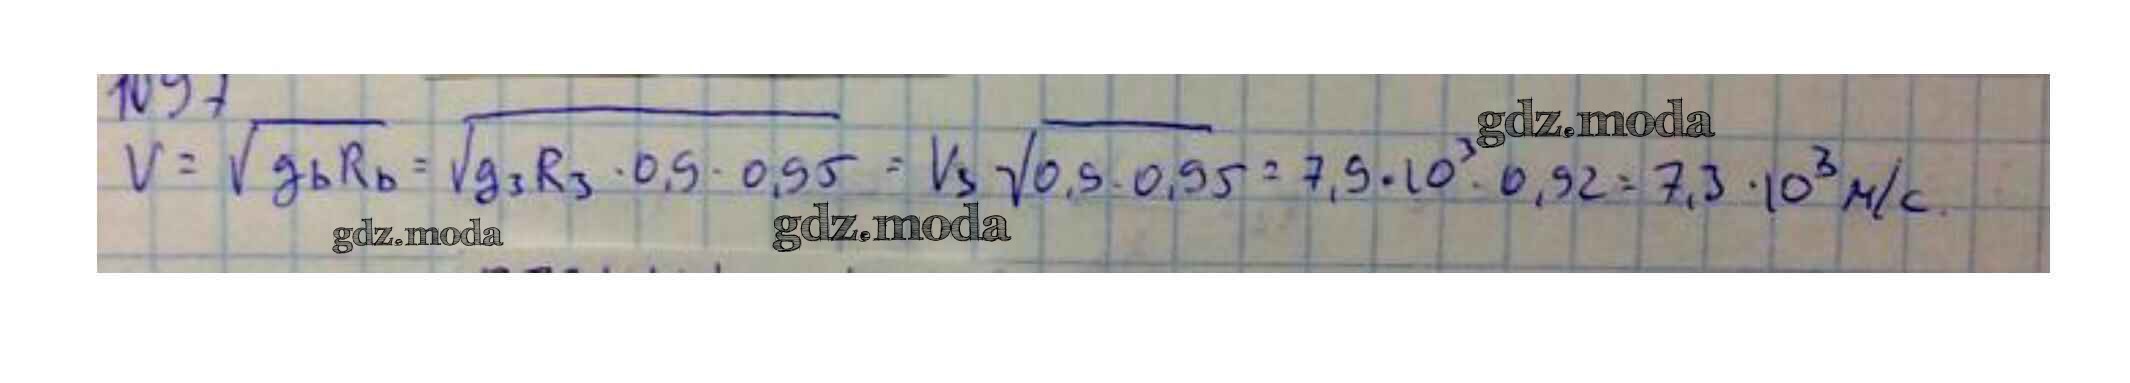 1097
V = √g_b R_b = √g_з R_з · 0,9 · 0,95 = V_з √0,9 · 0,95 = 7,9 · 10³ · 0,92 = 7,3 · 10³ м/с.
gdz.moda
gdz.moda
gdz.moda